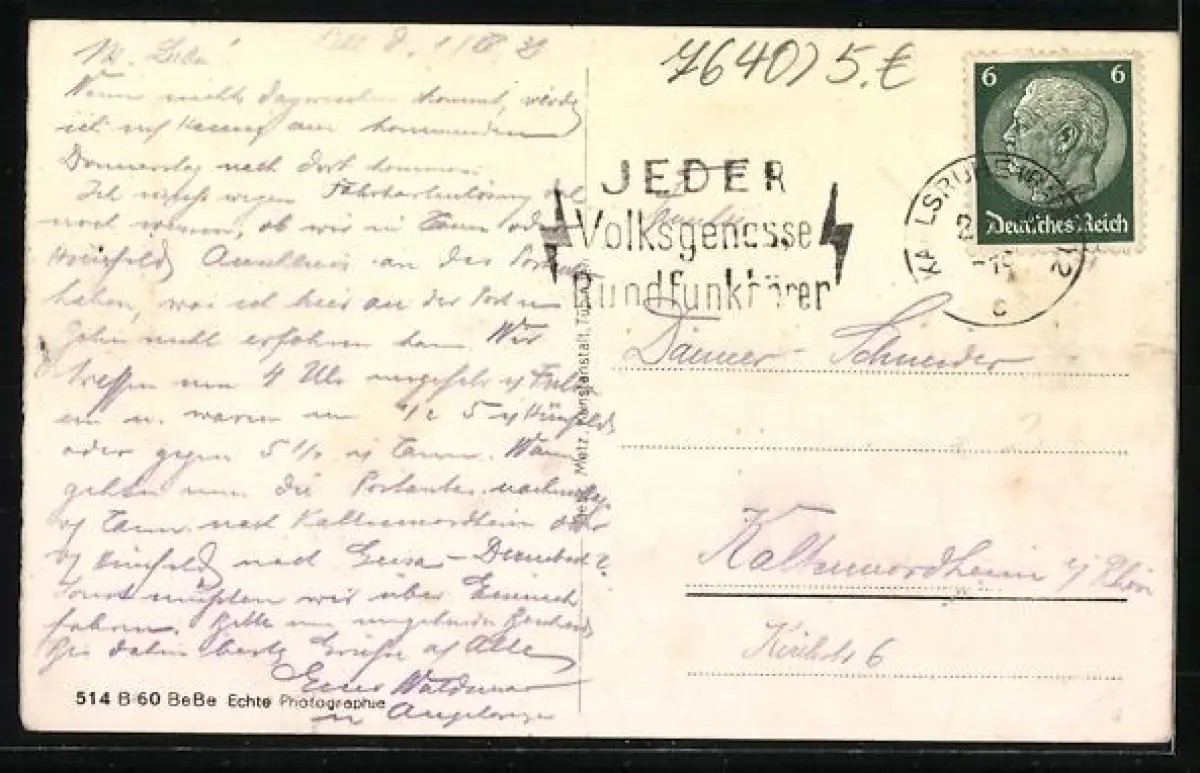 Wenn nichts dazwischen kommt, werde
ich am kommenden
Donnerstag nach dort kommen.
Ich muss wegen Fahrkartenlösung
noch wissen, ob wir in Tann oder
Hünfeld Anschluss an das Postauto
haben, was ich hier an der Post u.
Bahn nicht erfahren kann. Wir
treffen um 4 Uhr ungefähr i/ Fulda
ein u. wären um 1/2 5 i/ Hünfeld
oder gegen 5 i/ Tann. Wann
gehen nun die Postautos nachmittag
v/ Tann nach Kaltennordheim oder
v/ Hünfeld nach Geisa - Dermbach?
Sonst müssten wir über Eisenach
fahren. Bitte um umgehenden Bescheid
Bis dahin herzl. Grüsse a/ Alle
Euer Waldemar
u
514 B 60 BeBe Echte Photographie
Metz, Kunstanstalt, Tü
7640) 5.€
JEDER
Volksgenosse
Rundfunkhörer
6 6
Deutsches Reich
KARLSRUHE
2
c
Schneider
Kaltennordheim i/ Rhön
6